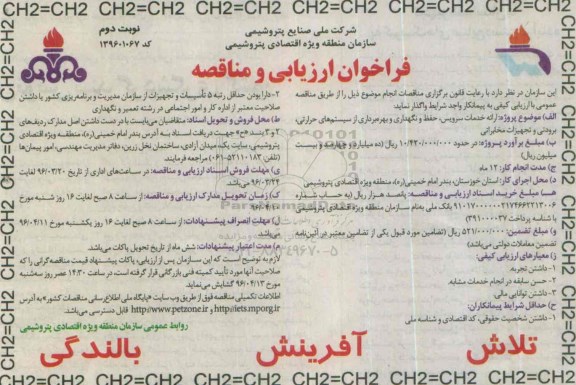 CH2=CH2 CH2=CH2 CH2=CH2 CH2=CH2 CH2=CH2 CH2=CH2 CH2=CH2
شرکت ملی صنایع پتروشیمی
سازمان منطقه ویژه اقتصادی پتروشیمی
نوبت دوم
کد ۱۳۹۶۰۱۰۶۷
فراخوان ارزیابی و مناقصه
این سازمان در نظر دارد با رعایت قانون برگزاری مناقصات انجام موضوع ذیل را از طریق مناقصه
عمومی با ارزیابی کیفی به پیمانکار واجد شرایط واگذار نماید
الف) موضوع پروژه: ارائه خدمات سرویس، حفظ و نگهداری و بهره‌برداری از سیستم‌های حرارتی،
برودتی و تجهیزات مخابراتی
ب) مبلغ برآورد پروژه: در حدود ۱۰/۴۲۰/۰۰۰/۰۰۰ ریال (ده میلیارد و چهارصد و بیست
میلیون ریال)
ج) مدت انجام کار: ۱۲ ماه
د) محل اجرای کار: استان خوزستان، بندر امام خمینی(ره)، منطقه ویژه اقتصادی پتروشیمی
هـ) مبلغ خرید اسناد ارزیابی و مناقصه: پانصد هزار ریال (به حساب شماره
بانک ملی به‌نام سازمان منطقه ویژه اقتصادی پتروشیمی
با شناسه پرداخت ۳۹۱۰۰۰۰۳۷)
و) مبلغ تضمین: ۵۲۱/۰۰۰/۰۰۰ ریال (تضامین مورد قبول یکی از تضامین معتبر در آئین‌نامه
تضمین معاملات دولتی می‌باشد)
ز) معیارهای ارزیابی کیفی:
۱- داشتن تجربه
۲- حسن سابقه در انجام خدمات مشابه
۳- داشتن توانایی مالی
ح) حداقل شرایط پیمانکاران:
۱- داشتن شخصیت حقوقی، کد اقتصادی و شناسه ملی
۲- دارا بودن حداقل رتبه ۵ تأسیسات و تجهیزات از سازمان مدیریت و برنامه‌ریزی کشور یا داشتن
صلاحیت معتبر از اداره کار و امور اجتماعی در رشته تعمیر و نگهداری
ط) محل فروش و تحویل اسناد: متقاضیان می‌بایست با در دست داشتن اصل مدارک ردیف‌های
۲و۳ بند «ح» جهت دریافت اسناد به آدرس بندر امام خمینی(ره)، منطقه ویژه اقتصادی
پتروشیمی، سایت یک، میدان آزادی، ساختمان نخل زرین، دفاتر مدیریت مهندسی، امور پیمان‌ها
(تلفن ۵۲۱۱۰۱۸۳-۰۶۱) مراجعه فرمایند.
ی) مهلت فروش اسناد ارزیابی و مناقصه: در ساعت‌های اداری از تاریخ ۹۶/۰۳/۲۰ لغایت
۹۶/۰۳/۲۴ می‌باشد
ک) زمان تحویل مدارک ارزیابی و مناقصه: از ساعت ۸ صبح لغایت ۱۶ روز شنبه مورخ
ل) مهلت انصراف پیشنهادات: از ساعت ۸ صبح لغایت ۱۶ روز یکشنبه مورخ ۹۶/۰۴/۱۱
می‌باشد
م) مدت اعتبار پیشنهادات: شش ماه از تاریخ تحویل پاکات می‌باشد
لازم به توضیح است که این سازمان پس از ارزیابی، پاکات پیشنهاد قیمت مناقصه‌گرانی را که
صلاحیت آنها مورد تأیید کمیته فنی بازرگانی قرار گرفته است، در ساعت ۱۴:۳۰ عصر روز سه‌شنبه
مورخ ۹۶/۰۴/۱۳ گشایش می‌نماید
اطلاعات تکمیلی مناقصه فوق از طریق وب سایت «پایگاه ملی اطلاع‌رسانی مناقصات کشور» به آدرس
http://iets.mporg.ir و http://www.petzone.ir قابل دسترسی می‌باشد.
روابط عمومی سازمان منطقه ویژه اقتصادی پتروشیمی
تلاش آفرینش بالندگی
CH2=CH2 CH2=CH2 CH2=CH2 CH2=CH2 CH2=CH2 CH2=CH2 CH2=CH2